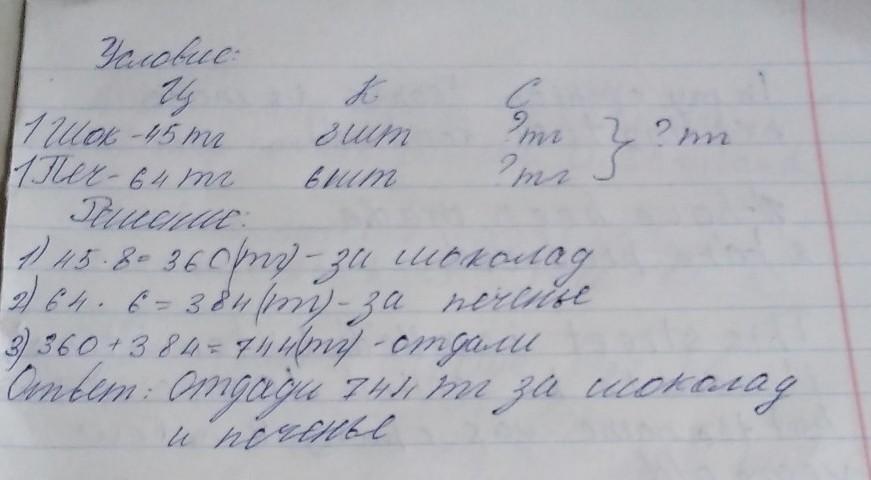 Условие:
Ц К С
1 Шок - 45 тг 8 шт ? тг } ? тг
1 Печ - 64 тг 6 шт ? тг
Решение:
1) 45 · 8 = 360 (тг) - за шоколад
2) 64 · 6 = 384 (тг) - за печенье
3) 360 + 384 = 744 (тг) - отдали
Ответ: отдади 744 тг за шоколад
и печенье